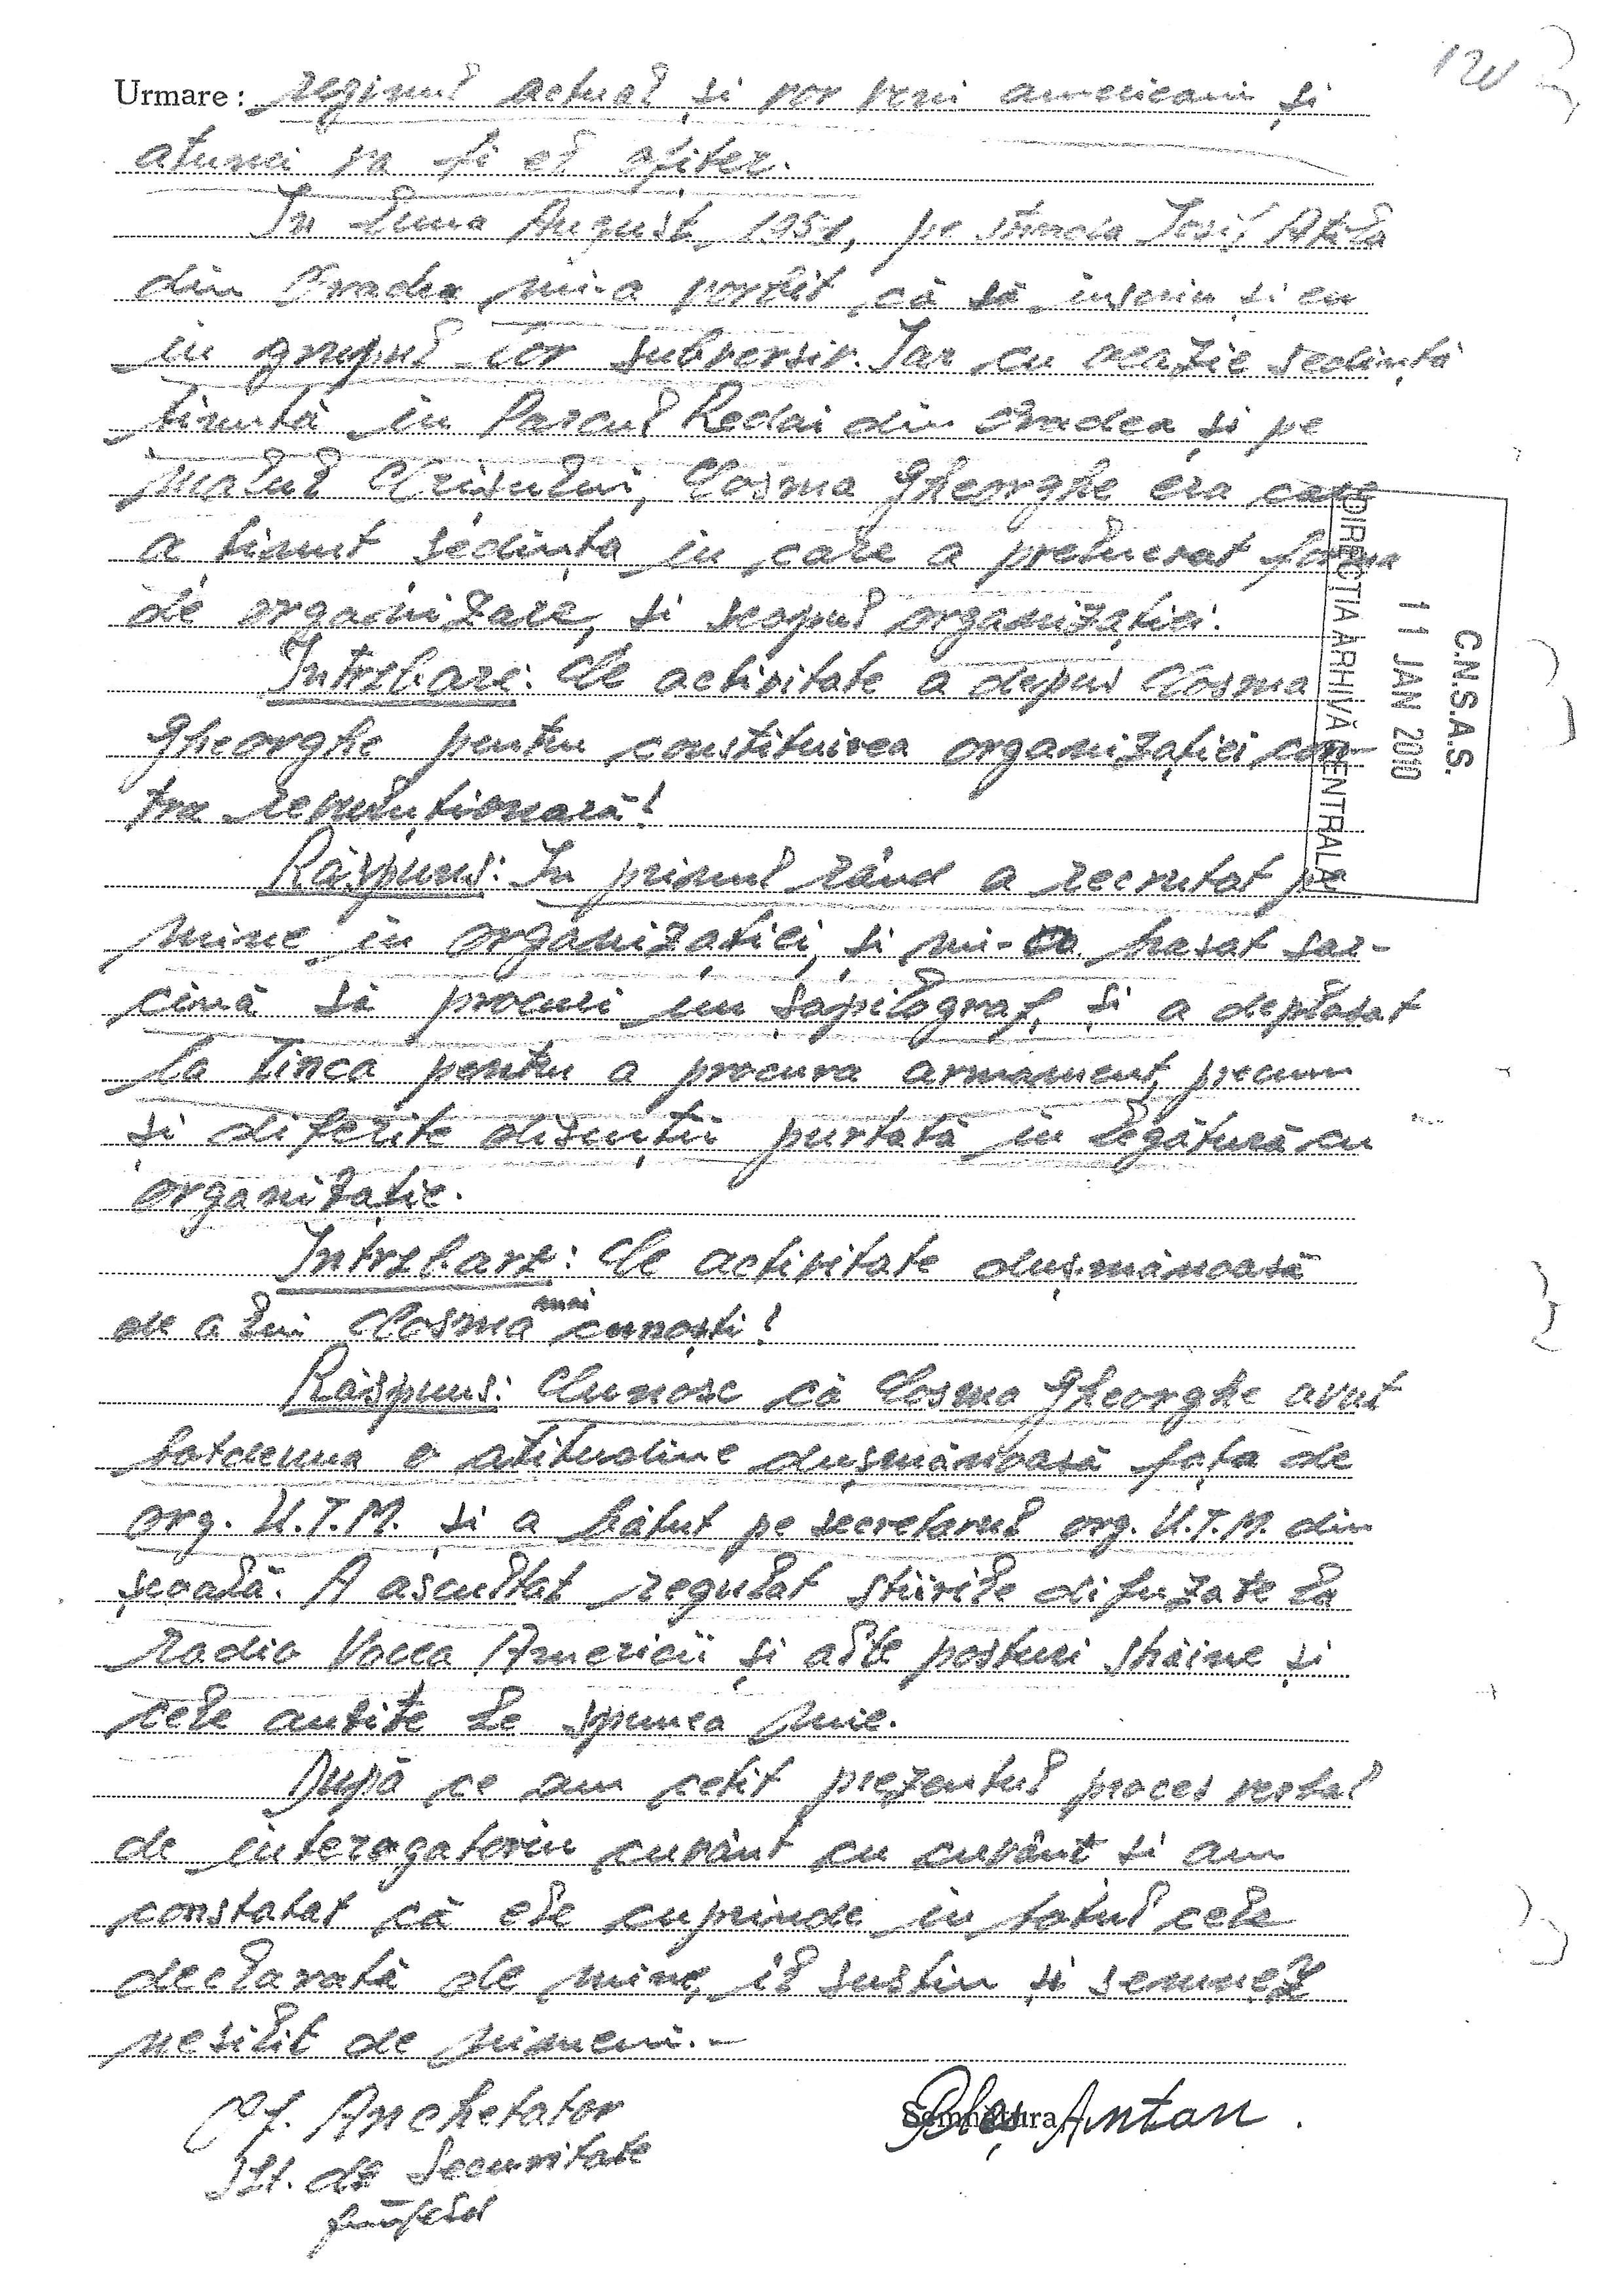 Urmare: regimul actual și vor veni americani și
atunci va fi el ofițer.
In luna August 1951, pe strada Iosif Atila
din Oradea mi-a vorbit că să inscriu și eu
in grupul lor subversiv. Iar cu ocazie sedință
tinută in Parcul Redai din Oradea și pe
malul Crisului, Cosma Gheorghe era care
a tinut sedința in care a prelucrat forma
de organizare, si scopul organizației.
Intrebare: Ce activitate a depus Cosma
Gheorghe pentru constituirea organizației con-
tra revoluționară!
Răspuns: In primul rând a recrutat pe
mine in organizației, și mi-a trasat sar-
cină să procuri un șapilograf, și a deplasat
la Tinca pentru a procura armament, precum
și diferite discuții purtată in legătură cu
organizație.
Intrebare: Ce activitate dușmănoasă
de a lui Cosma mai cunoști!
Răspuns: Cunosc că Cosma Gheorghe avut
totdeuna o atitudine dușmănoasă fața de
org. U.T.M. și a bătut pe secretarul org. U.T.M. din
școală. A ascultat regulat stiirile difuzate la
radio Vocea Americii și alte posturi străine și
cele auzite le spunea mie.
După ce am cetit prezentul proces verbal
de interogatoriu cuvânt cu cuvânt si am
constatat că ele cuprinde in totul cele
declarată de mine, il sustin și semnez
nesilit de nimeni.-
Of. Anchetator
Slt. de Securitate
Semnătura
Bleș Antan.
C.N.S.A.S.
11 JAN 2010
DIRECȚIA ARHIVĂ CENTRALĂ